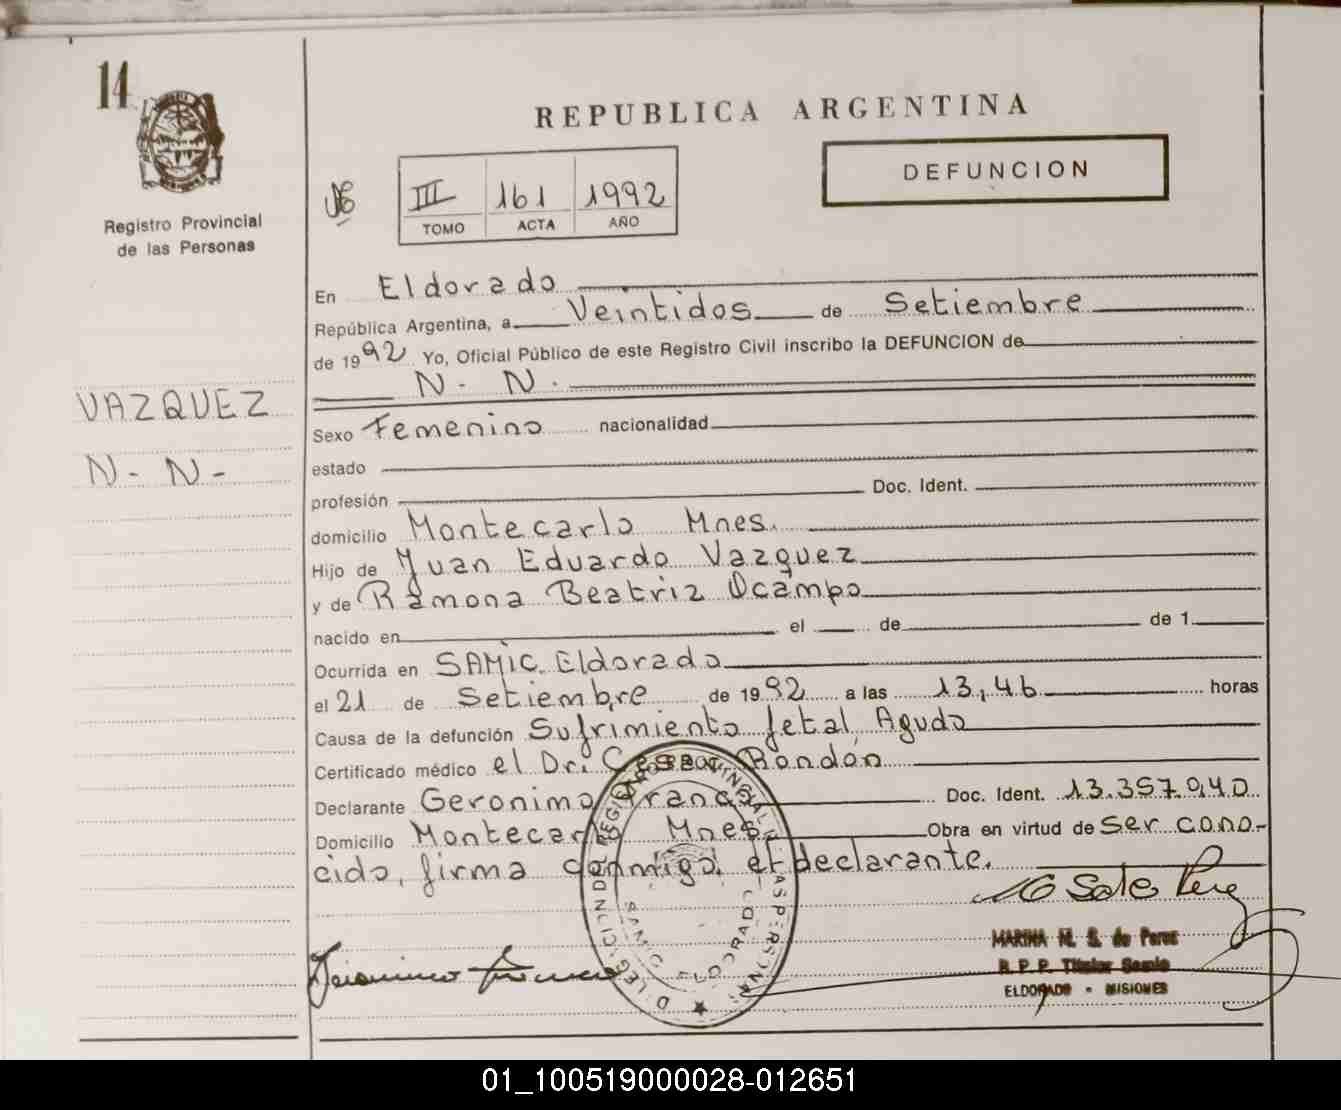 14
REPUBLICA ARGENTINA
DEFUNCION
Registro Provincial
de las Personas
III 161 1992
TOMO ACTA AÑO
En Eldorado
República Argentina, a Veintidos de Setiembre
de 1992 Yo, Oficial Público de este Registro Civil inscribo la DEFUNCION de
N. N.
VAZQUEZ
N- N-
Sexo Femenino nacionalidad
estado
profesión Doc. Ident.
domicilio Montecarlo Mnes.
Hijo de Juan Eduardo Vazquez
y de Ramona Beatriz Ocampo
nacido en el de de 1
Ocurrida en SAMIC. Eldorado
el 21 de Setiembre de 1992 a las 13,46 horas
Causa de la defunción Sufrimiento fetal Agudo
Certificado médico el Dr. Cesar Rondón
Declarante Geronimo Franco Doc. Ident. 13.357.940
Domicilio Montecarlo Mnes. Obra en virtud de ser cono-
cido, firma conmigo, el declarante.
MARINA M. S. de Perez
R. P. P. Titular Samic
ELDORADO - MISIONES
01_100519000028-012651